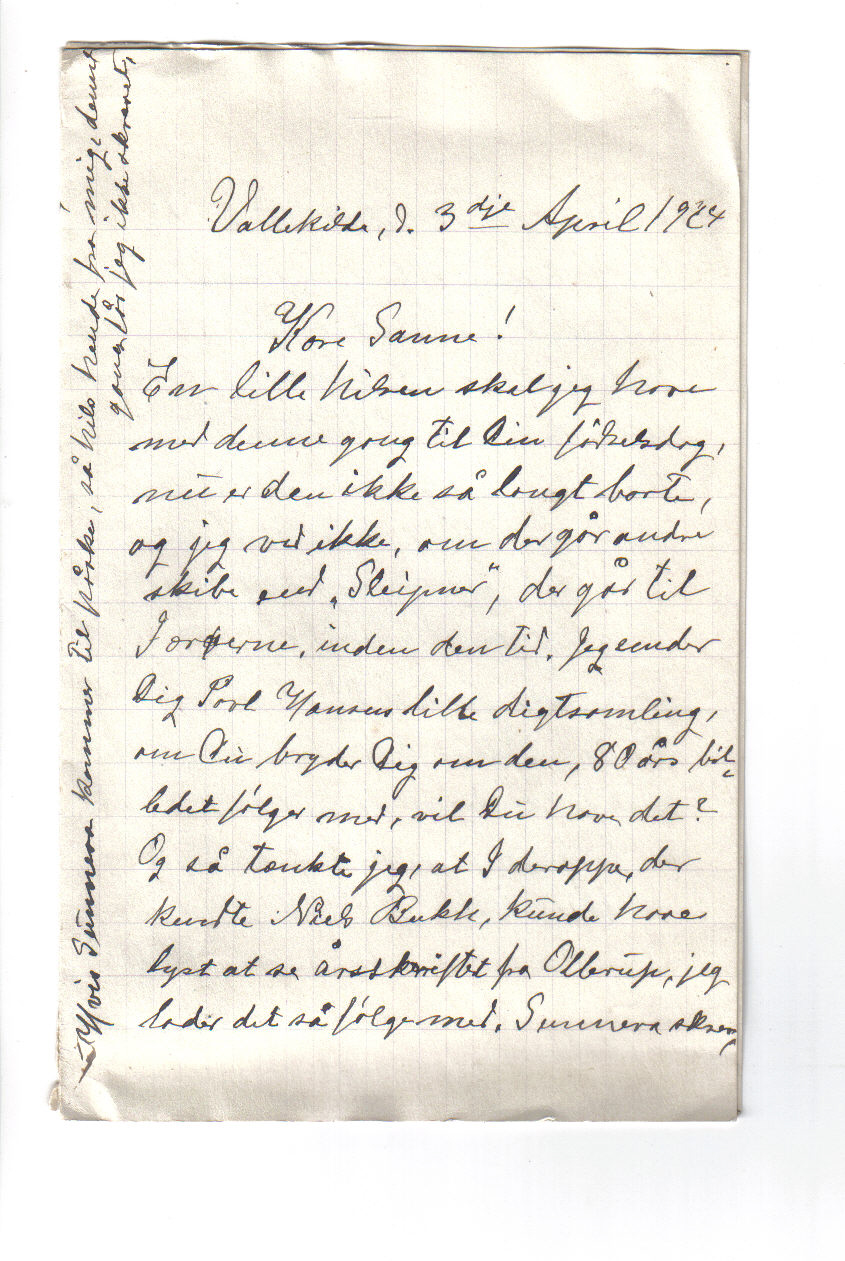 Vallekilde, d. 3dje April 1924
Kære Sanne!
En lille hilsen skal jeg have
med denne gang til Din fødselsdag,
nu er den ikke så langt borte,
og jeg ved ikke, om der går andre
skibe end „Sleipner“, der går til
Færøerne, inden den tid. Jeg sender
Dig Povl Hansens lille digtsamling,
om Du bryder Dig om den, 80 års bil-
ledet følger med, vil Du have det?
Og så tænkte jeg, at I deroppe, der
kendte Niels Bukh, kunde have
lyst at se årsskriftet fra Ollerup, jeg
lader det så følge med. Sunneva skrev,
Hvis Sunneva kommer til påske, så hils hende fra mig, denne
gang får jeg ikke skrevet,